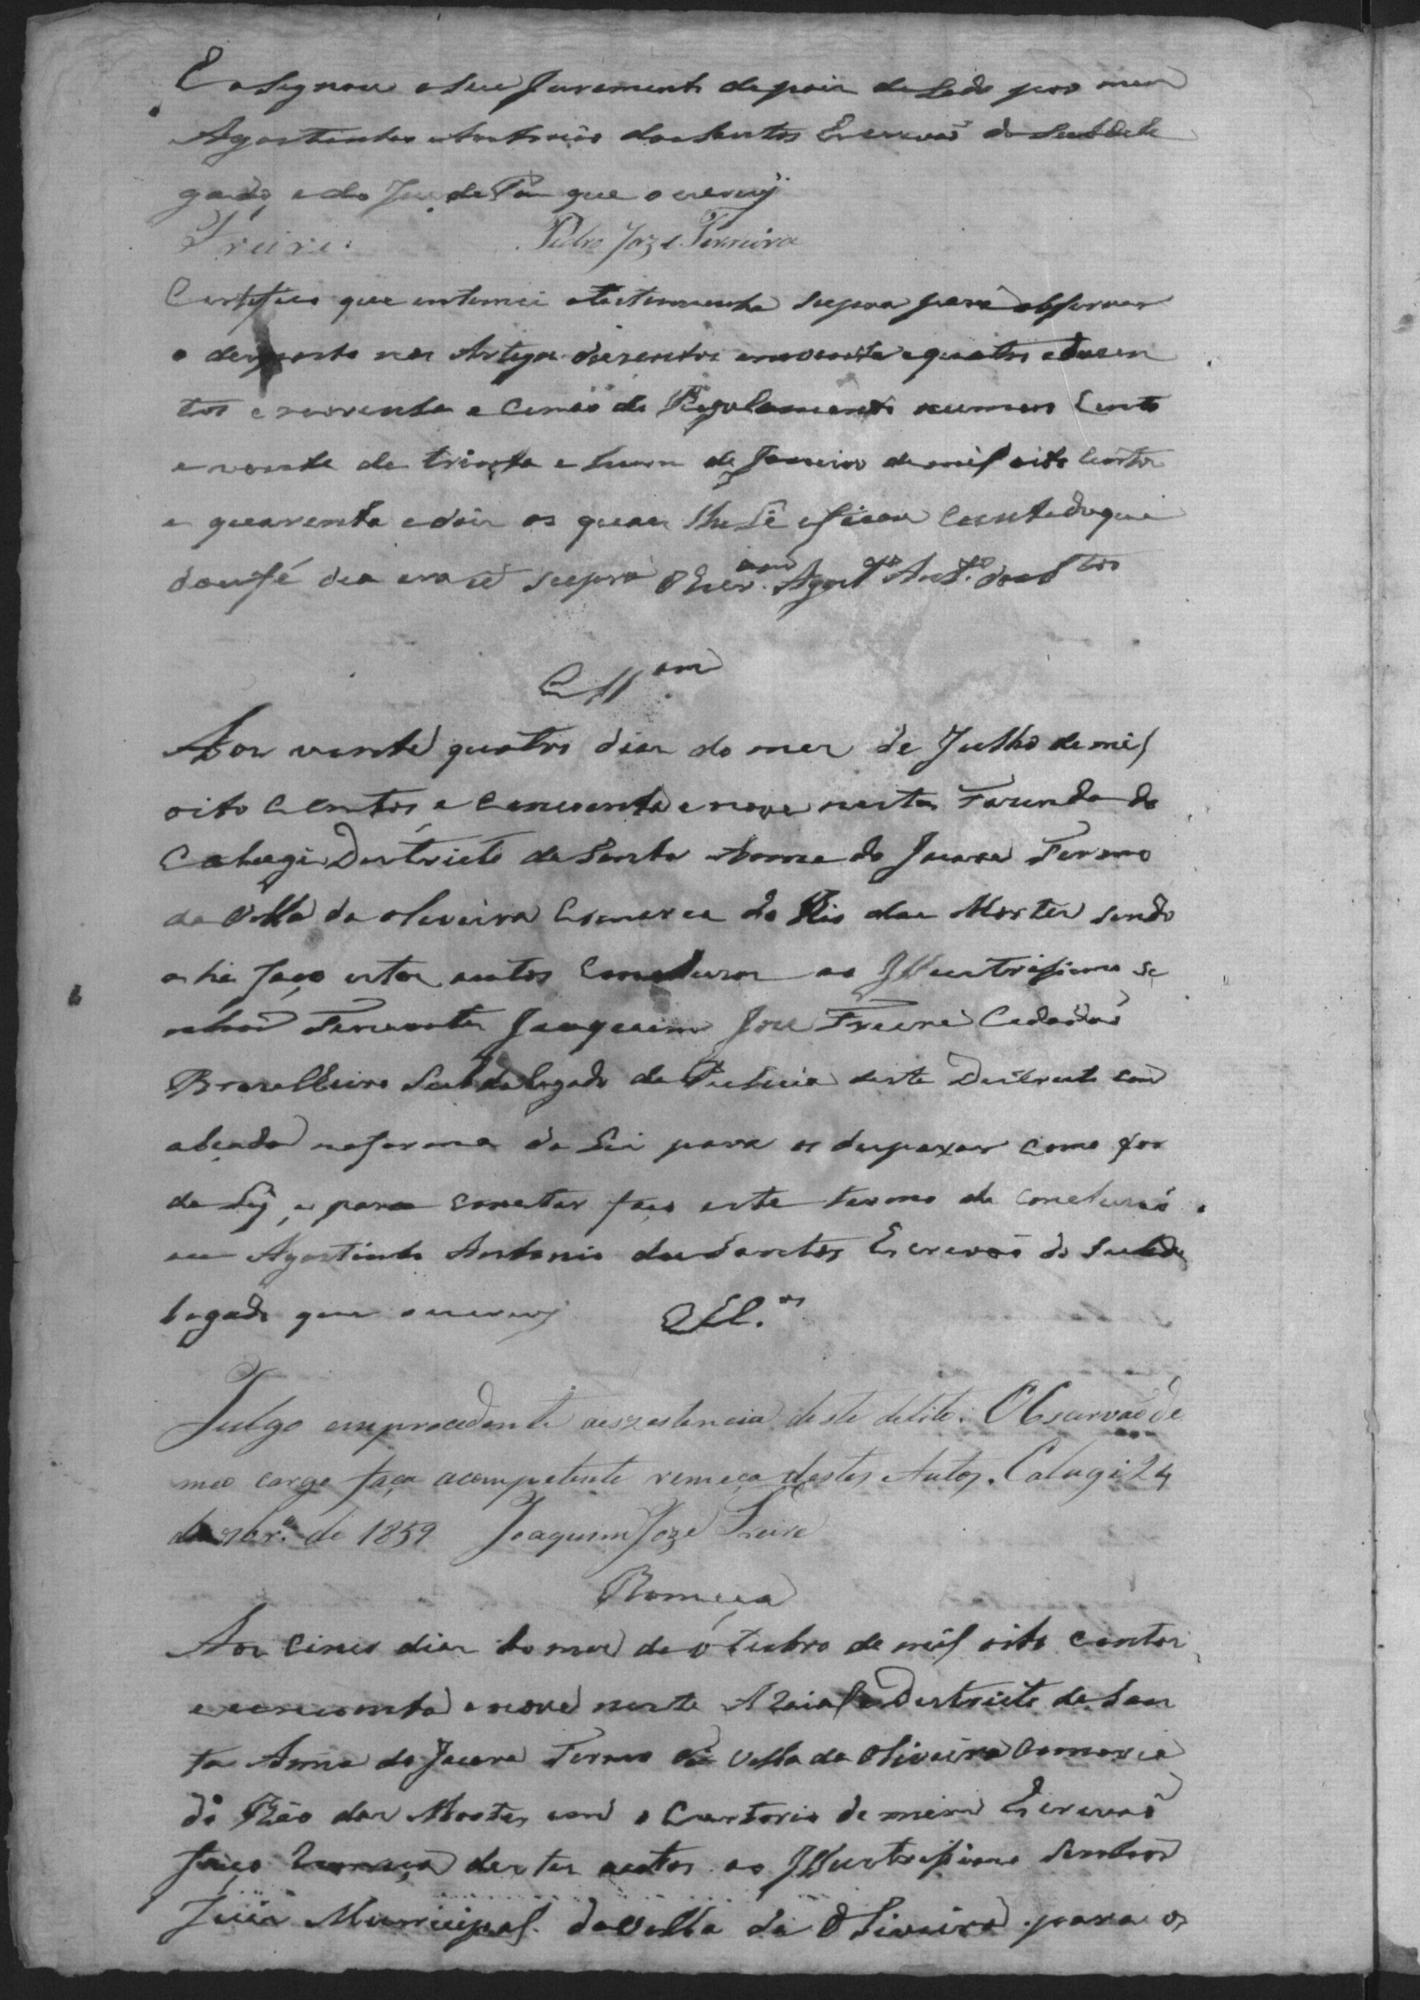 E asignou o seu Juramento depois de Lido por mim
Agostinho Antonio dos Santos Escrivaõ do Subdele
gado, e do Juis de Pas que o escrevy
Freire. Pedro Joze Ferreira
Certefico que entemei a testemunha supra para obsservar
o desposto nos Artigos duzentos e noventa e quatro e duzen
tos e noventa e Cinco do Regolamento numero Cento
e vente de trinta e hum de Janeiro de mil oito Centos
e quarenta e dois os quaes lhe Li e ficou Ciente do que
dou fé dia era e supra O Escr.am Agost.o Ant.o dos S.tos
Cll.am
Aos vente quatro dias do mes de Julho de mil
oito Centos e Cincoenta e nove nesta Fazenda do
Catugi Destricto de Santa Anna do Jacare Termo
da Villa da oliveira Comarca do Rio das Mortes sendo
ahi faço estes autos Concluzos ao Illustrissimo se
nhor Tenente Joaquim Jose Freire Cidadaõ
Brazilleiro Subdelegado de Pulicia deste Destricto com
alçada na forma da Lei para os despaxar como for
de Ley, e para constar faço este termo de concluzaõ
eu Agostinho Antonio dos Santos Escrivaõ do Subde
legado que o escrevy Cll.os
Julgo emprocedente aezestencia deste delito. O Escrivaõ de
meo cargo faça acompetente remeça destes Autos. Catugi 24
de de 1859 Joaquim Joze Freire
Romeça
Aos Cinco dias do mes de outubro de mil oito centos
e cencoenta e nove neste Arraial e Destricto de San
ta Anna do Jacare Termo da Villa da Oliveira Comarca
do Rio das Mortes em o Cartorio de mim Escrivaõ
faço remeça destes autos ao Illustrissimo Senhor
Juis Municipal da Villa da Oliveira para os